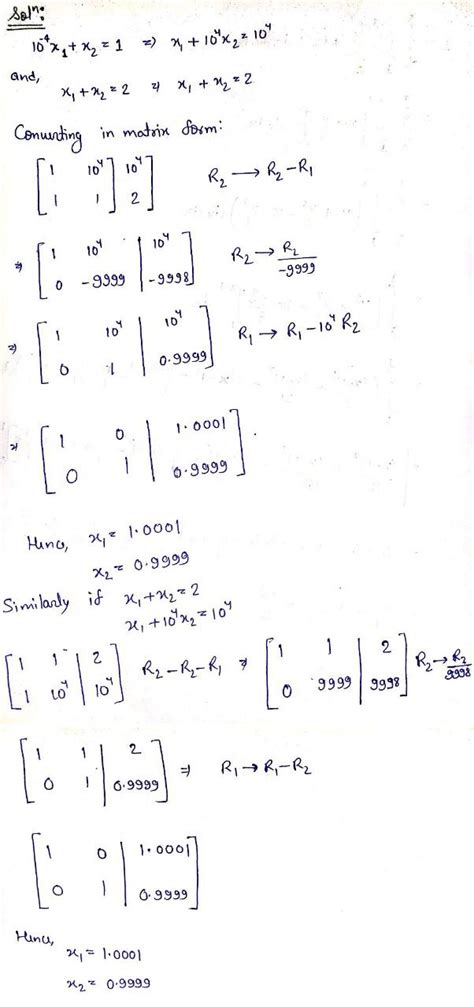 Solⁿ:
10⁻⁴x₁ + x₂ = 1 ⇒ x₁ + 10⁴x₂ = 10⁴
and,
x₁ + x₂ = 2 ⇒ x₁ + x₂ = 2
Converting in matrix form:
[ 1 10⁴ | 10⁴ ]
[ 1 1 | 2 ] R₂ → R₂ - R₁
⇒ [ 1 10⁴ | 10⁴ ]
[ 0 -9999 | -9998 ] R₂ → R₂/-9999
⇒ [ 1 10⁴ | 10⁴ ]
[ 0 1 | 0.9999 ] R₁ → R₁ - 10⁴ R₂
⇒ [ 1 0 | 1.0001 ]
[ 0 1 | 0.9999 ]
Hence, x₁ = 1.0001
x₂ = 0.9999
Similarly if x₁ + x₂ = 2
x₁ + 10⁴x₂ = 10⁴
[ 1 1 | 2 ] R₂ - R₂ - R₁ ⇒ [ 1 1 | 2 ] R₂ → R₂/9998
[ 1 10⁴ | 10⁴ ] [ 0 9999 | 9998 ]
[ 1 1 | 2 ]
[ 0 1 | 0.9999 ] ⇒ R₁ → R₁ - R₂
[ 1 0 | 1.0001 ]
[ 0 1 | 0.9999 ]
Hence,
x₁ = 1.0001
x₂ = 0.9999